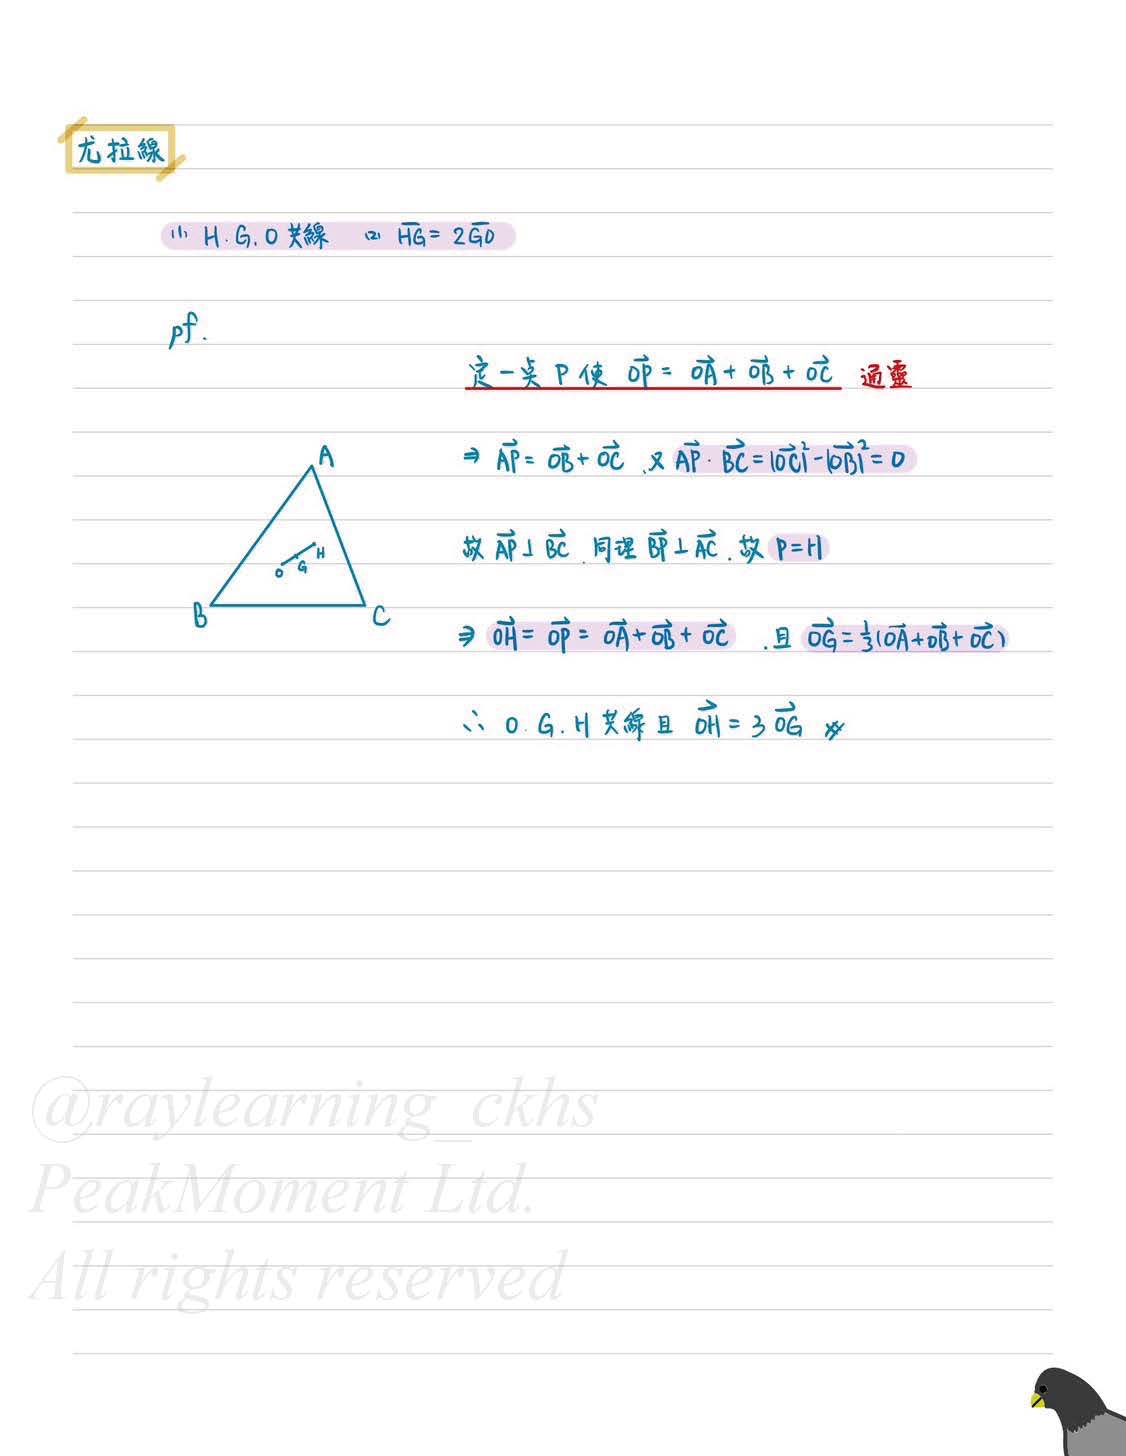 尤拉線
(1) H.G.O 共線 (2) H̅G̅ = 2G̅O̅
pf.
定一点 P 使 OP⃗ = OA⃗ + OB⃗ + OC⃗ 通靈
⇒ AP⃗ = OB⃗ + OC⃗ ,又 AP⃗ · BC⃗ = |OC⃗|² - |OB⃗|² = 0
故 AP⃗ ⊥ BC⃗ .同理 BP⃗ ⊥ AC⃗ .故 P = H
⇒ OH⃗ = OP⃗ = OA⃗ + OB⃗ + OC⃗ .且 OG⃗ = 1/3 (OA⃗ + OB⃗ + OC⃗)
∴ O.G.H 共線且 OH⃗ = 3 OG⃗ ※
A
H
G
O
B
C
@raylearning_ckhs
PeakMoment Ltd.
All rights reserved